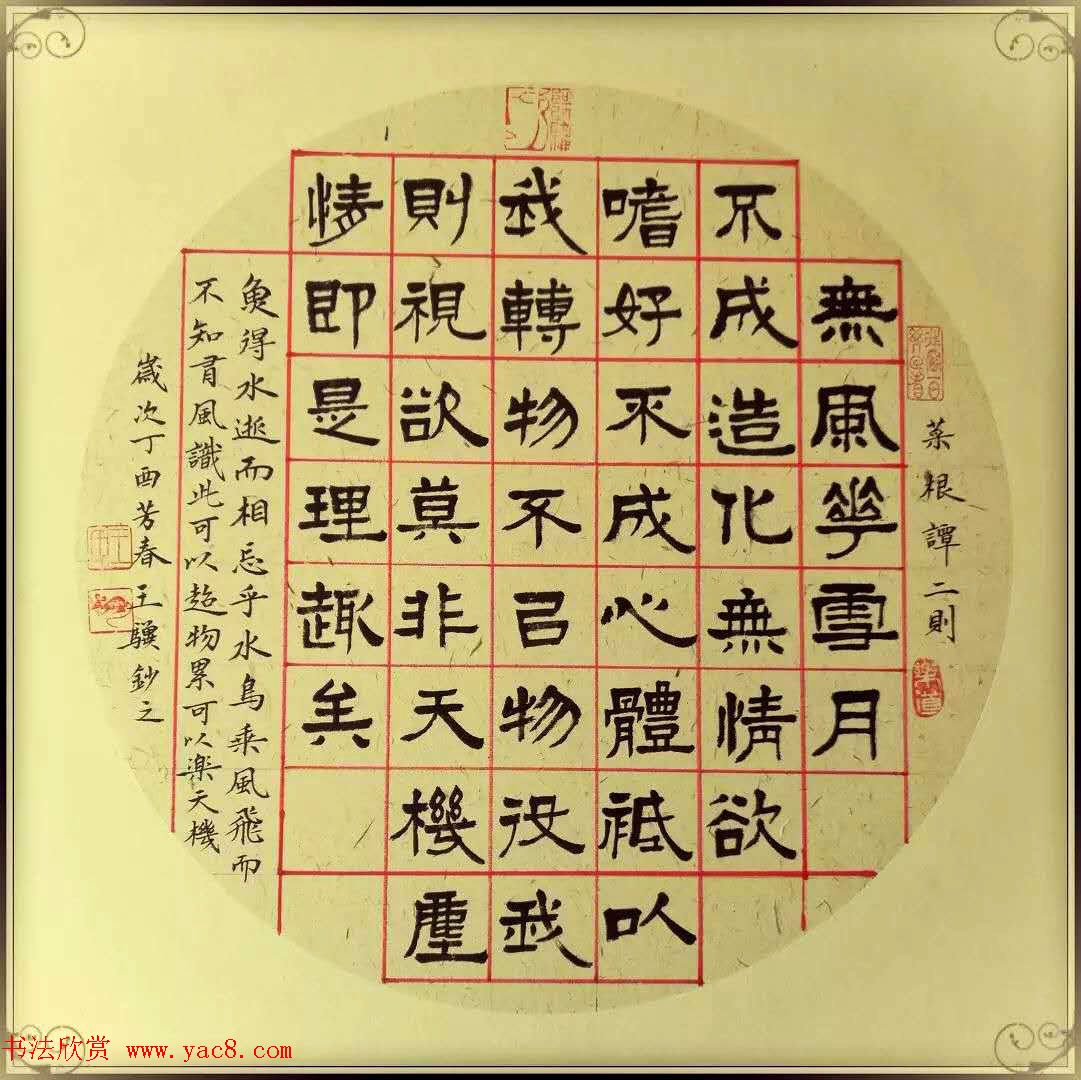 菜根譚二則
無風華雪月
不成造化無情欲
嗜好不成心體祗以
我轉物不㠯物役我
則視欲莫非天機塵
情即是理趣矣
魚得水逝而相忘乎水鳥乘風飛而
不知有風識此可以超物累可以楽天機
歲次丁酉芳春王驥鈔之
书法欣赏 www.yac8.com